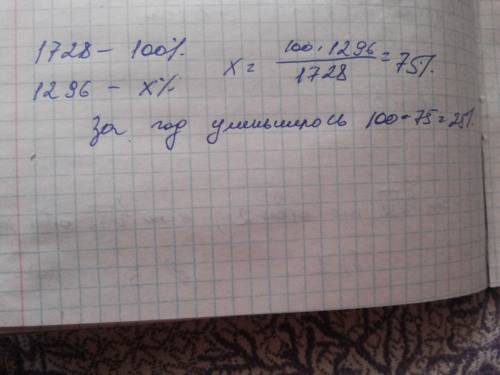 1728 – 100%.
1296 – x%
x = 100 · 1296 / 1728 = 75%.
За год уменьшилось 100 - 75 = 25%.